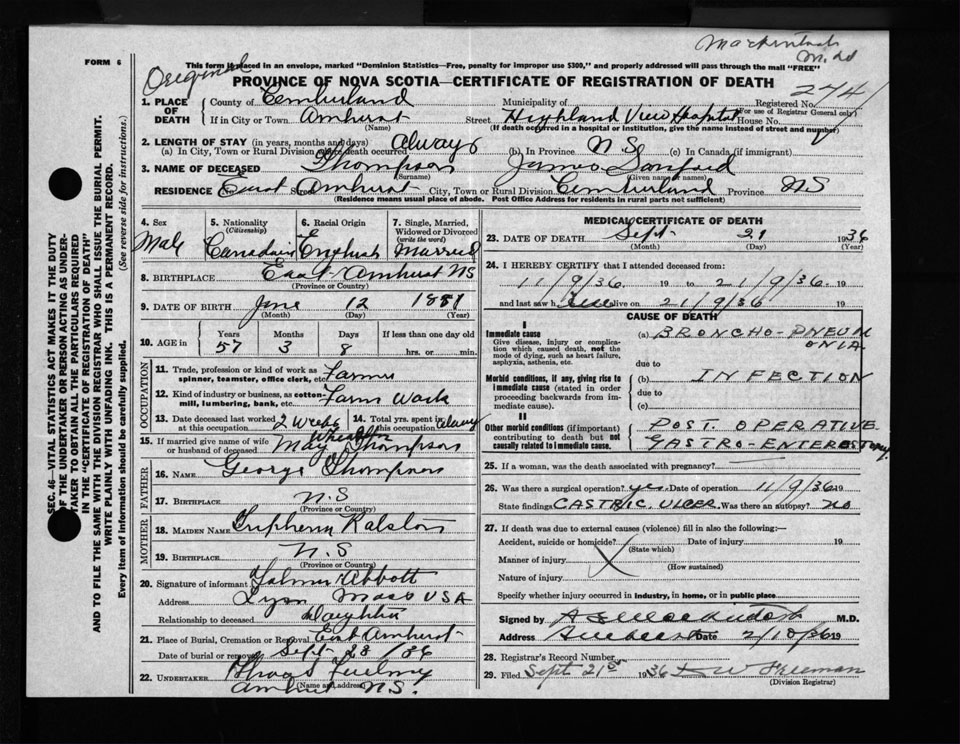 Mackintosh
M.D
FORM 6
Original
This form if placed in an envelope, marked "Dominion Statistics—Free, penalty for improper use $300," and properly addressed will pass through the mail "FREE"
PROVINCE OF NOVA SCOTIA—CERTIFICATE OF REGISTRATION OF DEATH
1. PLACE OF DEATH
County of Cumberland Municipality of Registered No. 274
(For use of Registrar General only)
If in City or Town Amherst Street Highland View Hospital House No.
(Name) (If death occurred in a hospital or institution, give the name instead of street and number)
2. LENGTH OF STAY (in years, months and days)
(a) In City, Town or Rural Division where death occurred Always (b) In Province N S (c) In Canada (if immigrant)
3. NAME OF DECEASED Thompson James Sanford
(Surname) (Given name or names)
RESIDENCE East Amherst City, Town or Rural Division Cumberland Province NS
(Residence means usual place of abode. Post Office Address for residents in rural parts not sufficient)
4. Sex Male
5. Nationality (Citizenship) Canadain
6. Racial Origin English
7. Single, Married, Widowed or Divorced (write the word) Married
8. BIRTHPLACE East Amherst NS
(Province or Country)
9. DATE OF BIRTH June 12
(Month) (Day) (Year)
10. AGE in Years Months Days If less than one day old
57 3 8 hrs. or min.
OCCUPATION
11. Trade, profession or kind of work as spinner, teamster, office clerk, etc. Farmer
12. Kind of industry or business, as cotton-mill, lumbering, bank, etc. Farm Work
13. Date deceased last worked at this occupation 2 Weeks
14. Total yrs. spent in this occupation always
15. If married give name of wife or husband of deceased May Wheaton Thompson
FATHER
16. NAME George Thompson
17. BIRTHPLACE N.S
(Province or Country)
MOTHER
18. MAIDEN NAME Ralston
19. BIRTHPLACE N.S
(Province or Country)
20. Signature of informant Abbott
Address Lynn Mass USA
Relationship to deceased Daughter
21. Place of Burial, Cremation or Removal East Amherst
Date of burial or removal Sept 23 /36
22. UNDERTAKER
Amherst N.S.
(Name and address)
MEDICAL CERTIFICATE OF DEATH
23. DATE OF DEATH Sept 21 1936
(Month) (Day) (Year)
24. I HEREBY CERTIFY that I attended deceased from:
11/9/36 19 to 21/9/36 19
and last saw h alive on 21/9/36 19
CAUSE OF DEATH
I
Immediate cause
Give disease, injury or complication which caused death, not the mode of dying, such as heart failure, asphyxia, asthenia, etc.
(a) BRONCHO-PNEUMONIA
due to
Morbid conditions, if any, giving rise to immediate cause (stated in order proceeding backwards from immediate cause)
(b) INFECTION
due to
(c)
II
Other morbid conditions (if important) contributing to death but not causally related to immediate cause.
POST. OPERATIVE
GASTRO-ENTEROSTOMY.
25. If a woman, was the death associated with pregnancy?
26. Was there a surgical operation? yes. Date of operation 11/9/36 19
State findings GASTRIC ULCER Was there an autopsy? no
27. If death was due to external causes (violence) fill in also the following:—
Accident, suicide or homicide? Date of injury 19
(State which)
Manner of injury X
(How sustained)
Nature of injury
Specify whether injury occurred in industry, in home, or in public place
Signed by Mackintosh M.D.
Address Amherst Date 2/10/36 19
28. Registrar's Record Number
29. Filed Sept 21st 1936 Freeman
(Division Registrar)
SEC. 46—VITAL STATISTICS ACT MAKES IT THE DUTY
OF THE UNDERTAKER OR PERSON ACTING AS UNDERTAKER TO OBTAIN ALL THE PARTICULARS REQUIRED
IN THE "CERTIFICATE OF REGISTRATION OF DEATH"
AND TO FILE THE SAME WITH THE DIVISION REGISTRAR WHO SHALL ISSUE THE BURIAL PERMIT.
WRITE PLAINLY WITH UNFADING INK. THIS IS A PERMANENT RECORD.
Every item of information should be carefully supplied. (See reverse side for instructions.)